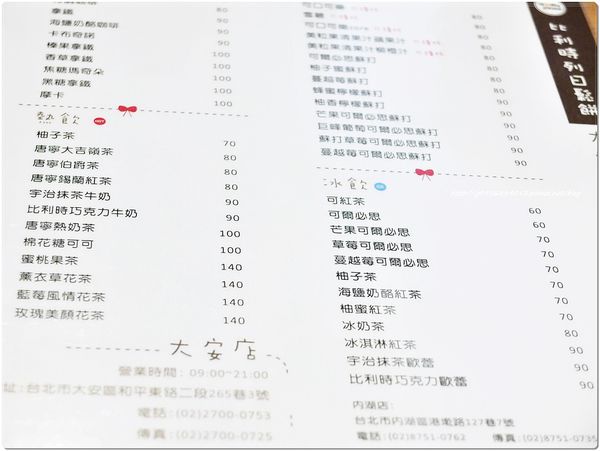 拿鐵
海鹽奶酪咖啡 80
卡布奇諾
榛果拿鐵
香草拿鐵 100
焦糖瑪奇朵 100
黑糖拿鐵 100
摩卡 100
熱飲 HOT
柚子茶 70
唐寧大吉嶺茶 80
唐寧伯爵茶 80
唐寧錫蘭紅茶 80
宇治抹茶牛奶 90
比利時巧克力牛奶 90
唐寧熱奶茶 100
棉花糖可可 100
蜜桃果茶 140
薰衣草花茶 140
藍莓風情花茶 140
玫瑰美顏花茶 140
大安店
營業時間: 09:00~21:00
址:台北市大安區和平東路二段265巷3號
電話:(02)2700-0753
傳真:(02)2700-0725
可口可樂
雪碧
可口可樂zero
美粒果清果汁蘋果汁 80
美粒果清果汁柳橙汁 80
可爾必思蘇打 80
柚子蜜蘇打 80
蔓越莓蘇打 90
蜂蜜檸檬蘇打 90
柚香檸檬蘇打 90
芒果可爾必思蘇打 90
巨峰葡萄可爾必思蘇打 90
蘇打草莓可爾必思蘇打 90
蔓越莓可爾必思蘇打 90
冰飲 ICE
可紅茶 60
可爾必思
芒果可爾必思 70
草莓可爾必思 70
蔓越莓可爾必思 70
柚子茶 70
海鹽奶酪紅茶
柚蜜紅茶 70
冰奶茶 80
冰淇淋紅茶 90
宇治抹茶歐蕾 90
比利時巧克力歐蕾 90
內湖店:
台北市內湖區港墘路127巷7號
電話:(02)8751-0762 傳真:(02)8751-0735
比利時列日鬆餅
大